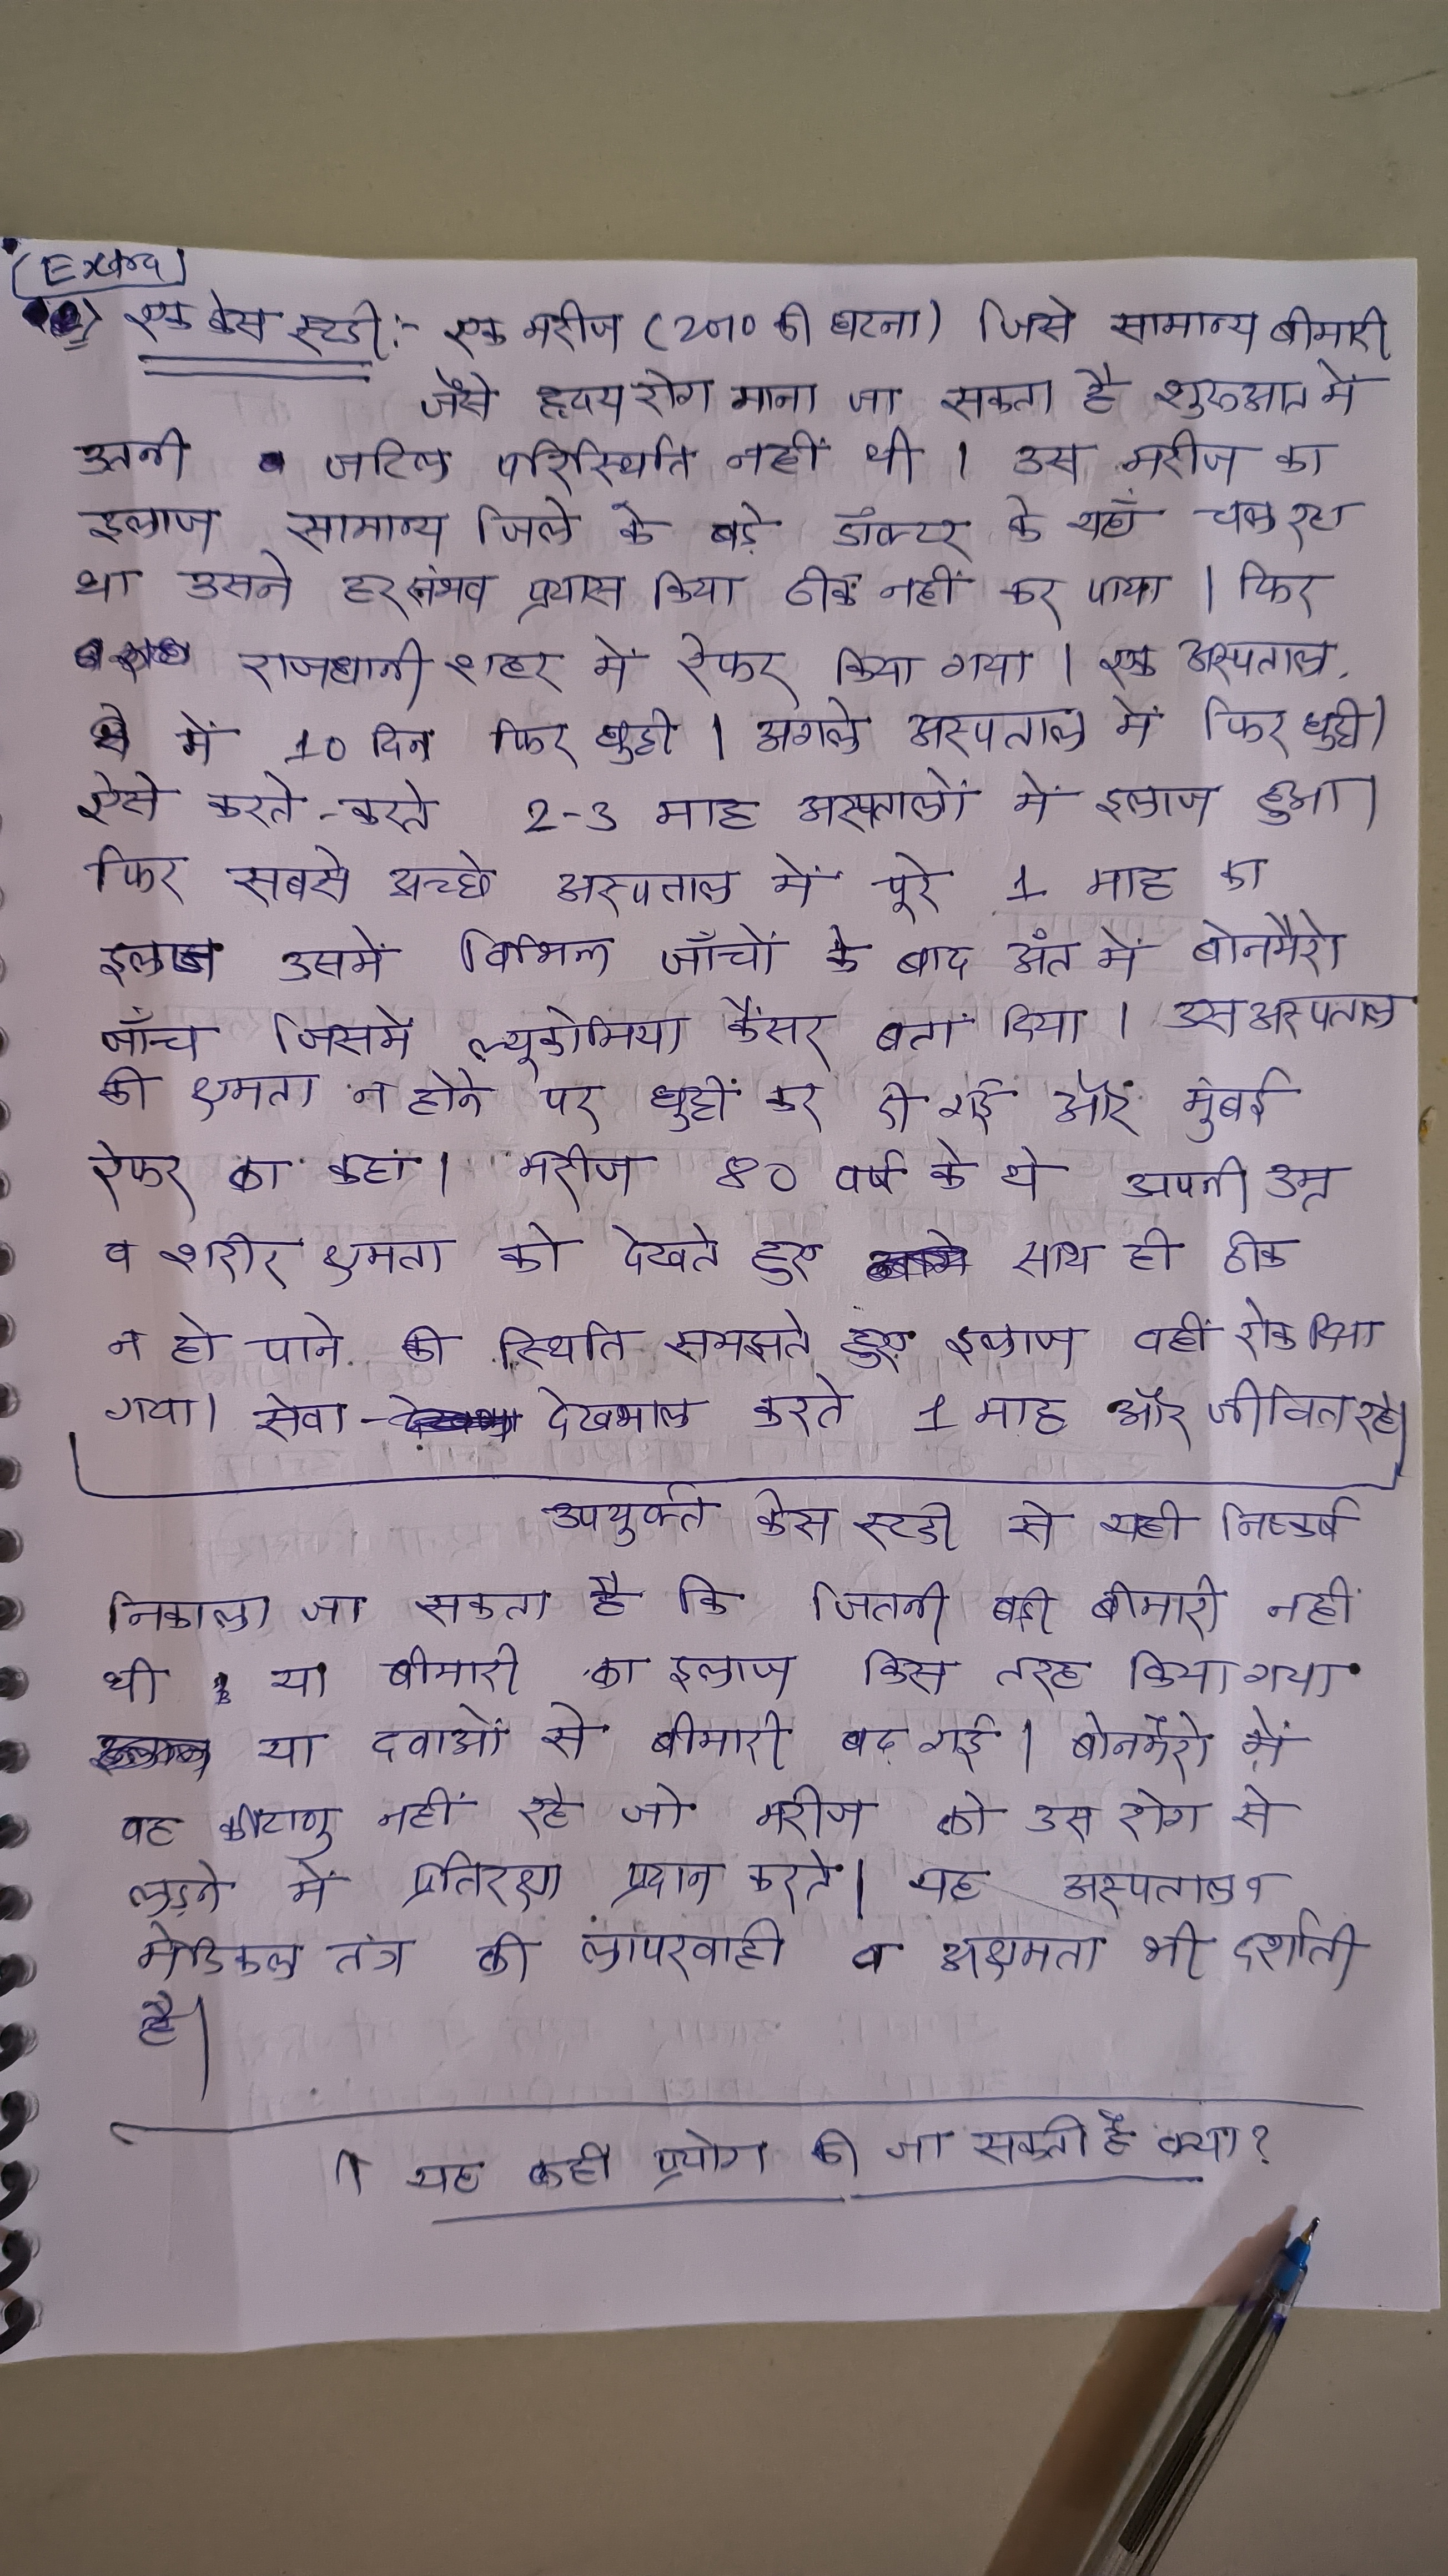 (Extra)
एक केस स्टडी:- एक मरीज (2010 की घटना) जिसे सामान्य बीमारी
जैसे हृदय रोग माना जा सकता है शुरुआत में
उतनी जटिल परिस्थिति नहीं थी । उस मरीज का
इलाज सामान्य जिले के बड़े डॉक्टर के यहाँ चल रहा
था उसने हर संभव प्रयास किया ठीक नहीं कर पाया । फिर
राजधानी शहर में रेफर किया गया । एक अस्पताल
में 10 दिन फिर छुट्टी । अगले अस्पताल में फिर छुट्टी।
ऐसे करते-करते 2-3 माह अस्पतालों में इलाज हुआ।
फिर सबसे अच्छे अस्पताल में पूरे 1 माह का
इलाज उसमें विभिन्न जाँचों के बाद अंत में बोनमैरो
जाँच जिसमें ल्यूकोमिया कैंसर बता दिया । उस अस्पताल
की क्षमता न होने पर छुट्टी कर दी गई और मुंबई
रेफर का कहा। मरीज 80 वर्ष के थे अपनी उम्र
व शरीर क्षमता को देखते हुए साथ ही ठीक
न हो पाने की स्थिति समझते हुए इलाज वहीं रोक दिया
गया। सेवा - देखभाल करते 1 माह और जीवित रहे।
उपयुक्त केस स्टडी से यही निष्कर्ष
निकाला जा सकता है कि जितनी बड़ी बीमारी नहीं
थी या बीमारी का इलाज किस तरह किया गया
या दवाओं से बीमारी बढ़ गई । बोनमैरो में
वह कीटाणु नहीं रहे जो मरीज को उस रोग से
लड़ने में प्रतिरक्षा प्रदान करते। यह अस्पताल व
मेडिकल तंत्र की लापरवाही व अक्षमता भी दर्शाती
है।
↑ यह कही प्रयोग की जा सकती है क्या?